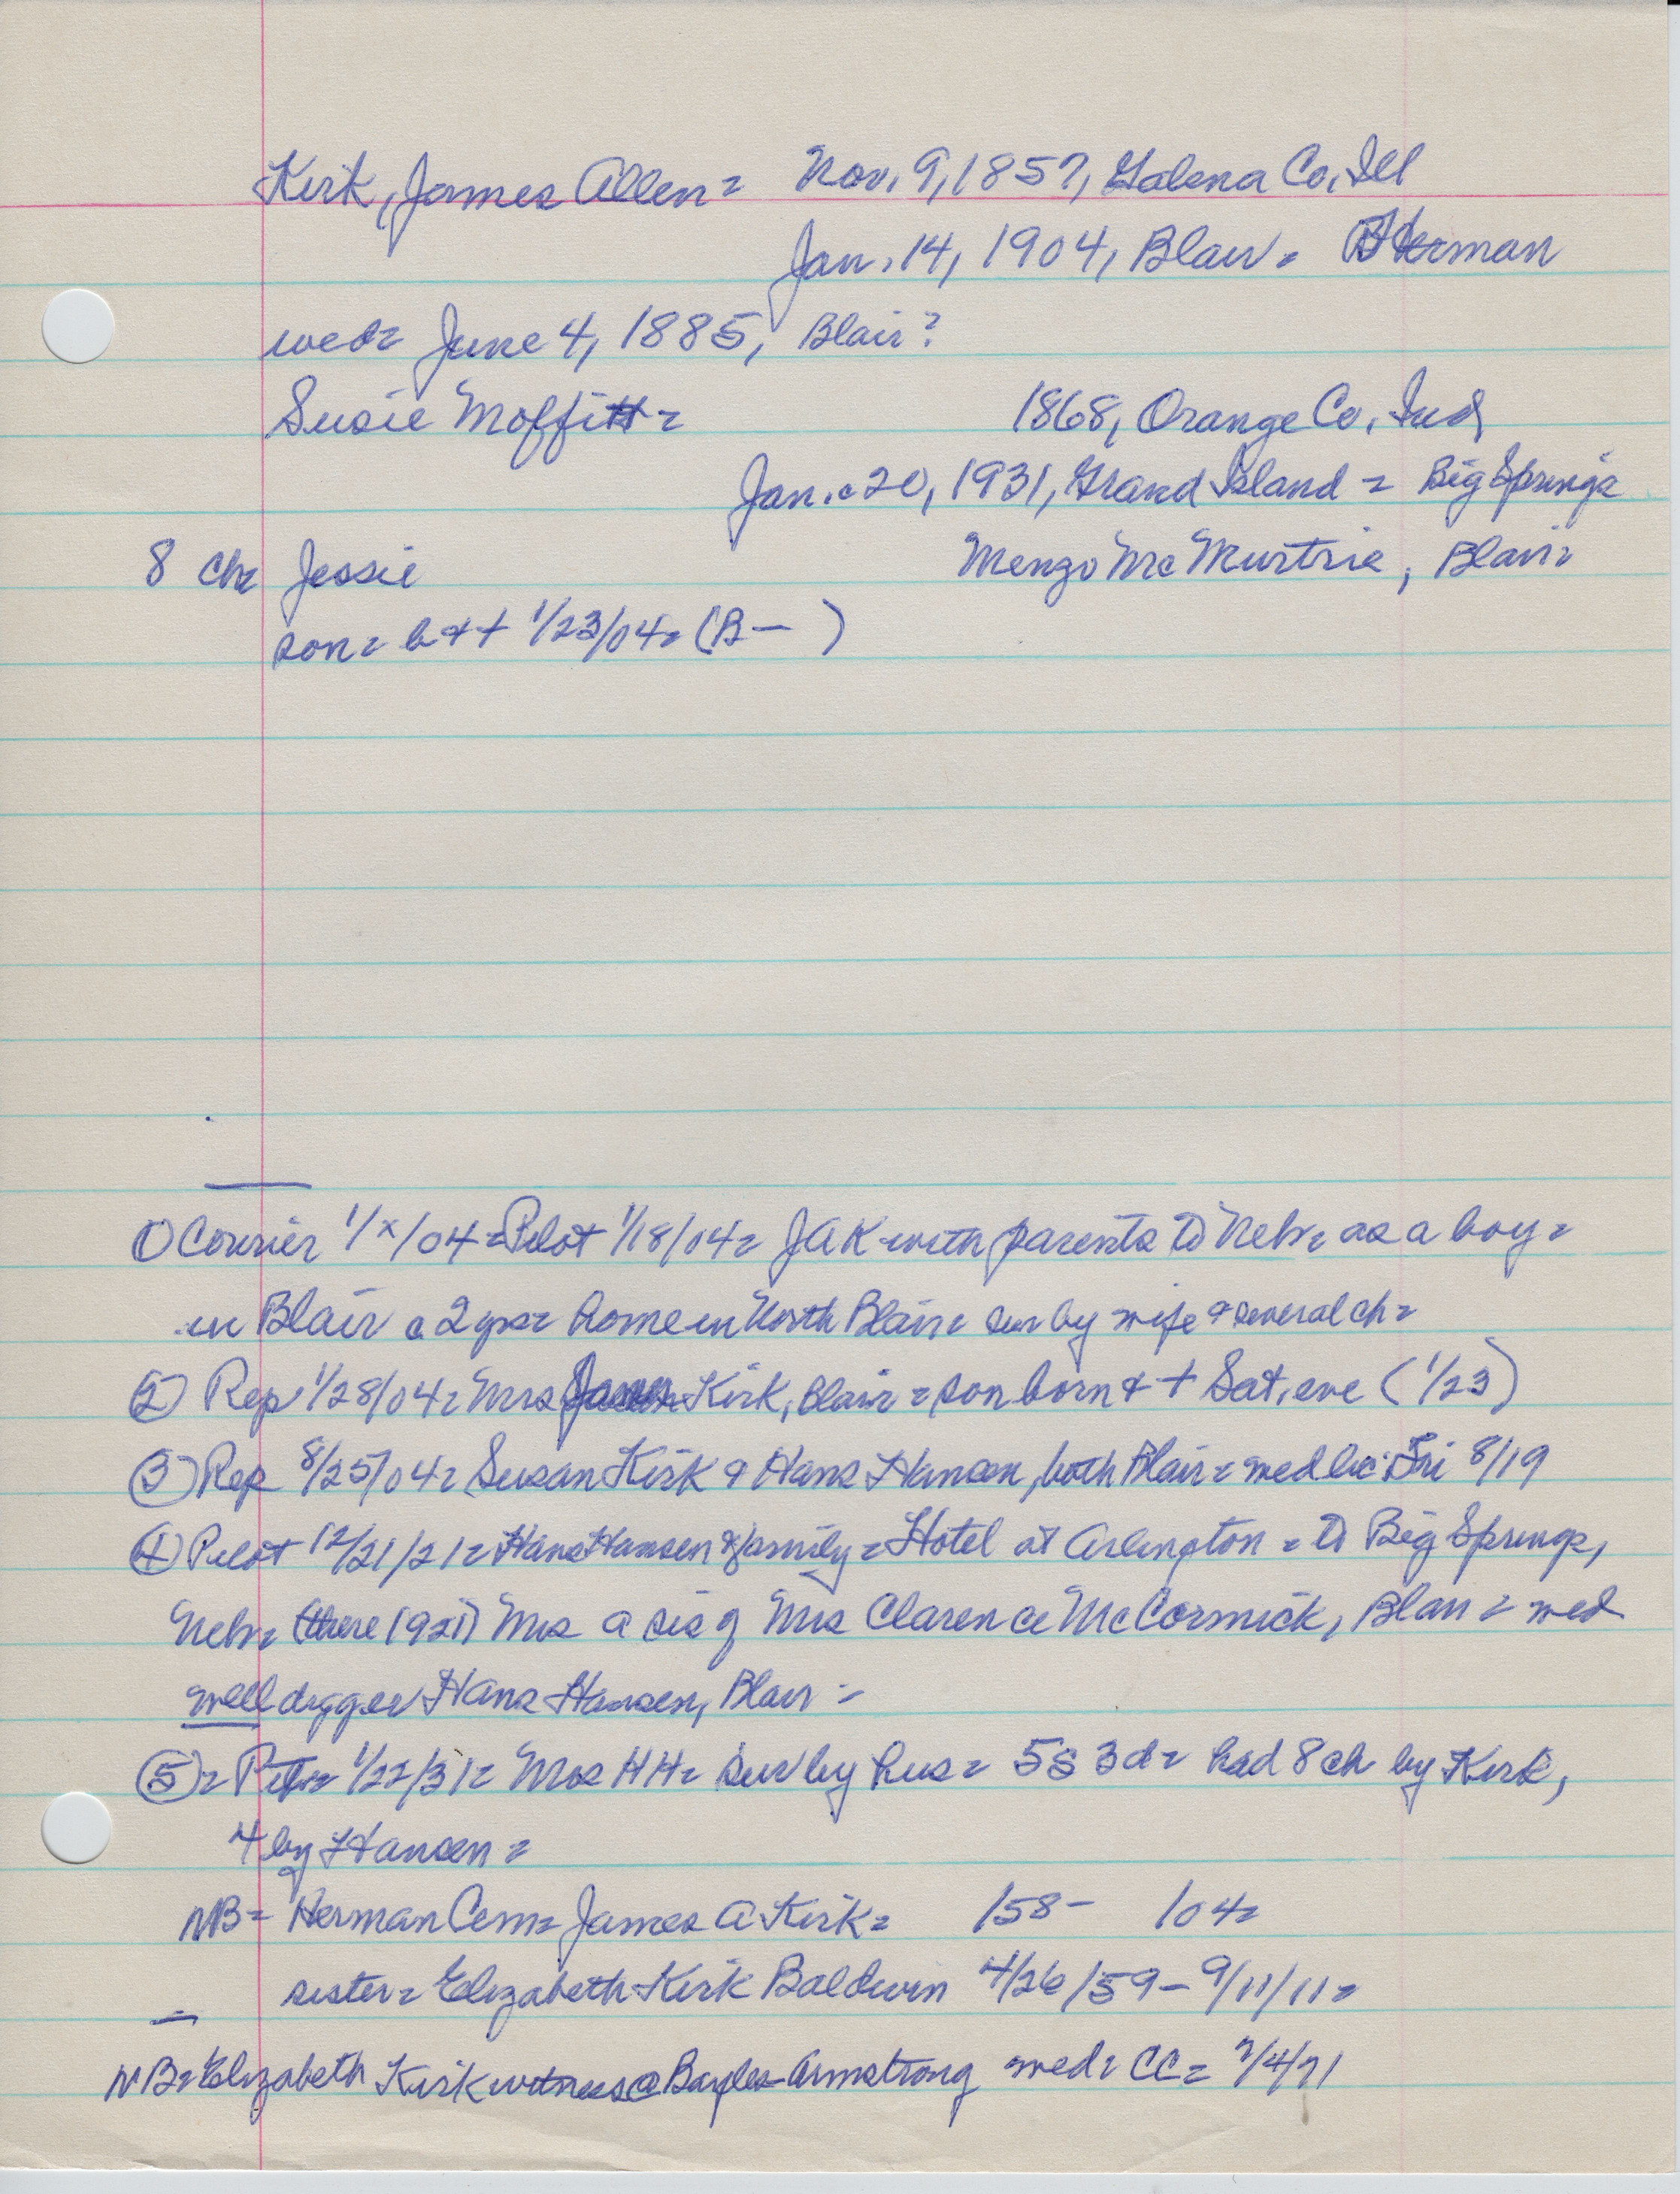 Kirk, James Allen = Nov. 9, 1857, Galena Co, Ill
Jan. 14, 1904, Blair = Herman
wed = June 4, 1885, Blair?
Susie Moffitt = 1868, Orange Co, Ind
Jan. c 20, 1931, Grand Island = Big Springs
8 ch = Jessie Mengo McMurtrie, Blair =
son = b + † 1/23/04 = (B— )
① Courier 1/x/04 = Pilot 1/18/04 = JAK with parents to Nebr = as a boy =
in Blair c 2 yrs = home in North Blair = sur by wife & several ch =
② Rep 1/28/04 = Mrs Kirk, Blair = son born & † Sat. eve (1/23)
③ Rep 8/25/04 = Susan Kirk & Hans Hansen, both Blair = wed lic Fri 8/19
④ Pilot 12/21/21 = Hans Hansen & family = Hotel at Arlington = to Big Springs,
Nebr = (there 1921) Mrs a sis of Mrs Clarence McCormick, Blair = wed
well digger Hans Hansen, Blair =
⑤ = 1/22/31 = Mrs HH = sur by hus = 5s 3d = had 8 ch by Kirk,
4 by Hansen =
NB = Herman Cem = James A Kirk = /58 - /04 =
sister = Elizabeth Kirk Baldwin 4/26/59 - 9/11/11 =
NB = Elizabeth Kirk witness @ Bayles-Armstrong wed = CC = 7/4/71